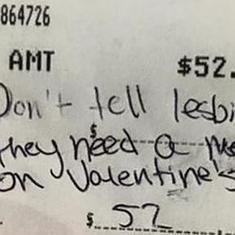 864726
AMT $52.
Don't tell lesbi
they need a m
on Valentine's
$ 52